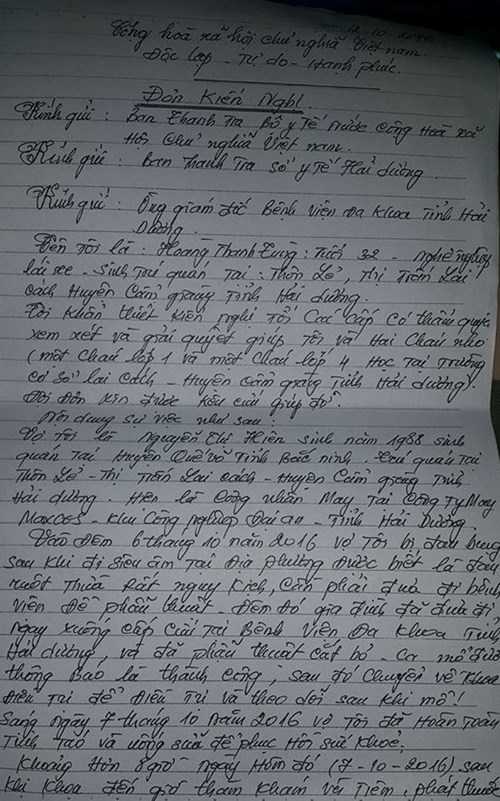 Cộng hoà xã hội chủ nghĩa Việt nam.
Độc lập - Tự do - Hạnh phúc.
Đơn Kiến Nghị.
Kính gửi: Ban Thanh Tra Bộ y Tế nước Cộng Hoà xã
Hội Chủ Nghĩa Việt nam.
Kính gửi: Ban Thanh Tra Sở y Tế Hải dương.
Kính gửi: Ông giám đốc Bệnh Viện Đa Khoa Tỉnh Hải
Dương.
Tên Tôi là: Hoàng Thanh Tùng: Tuổi 32 - nghề nghiệp
lái xe - Sinh Trú quán Tại: Thôn Lẻ, Thị Trấn Lai
cách Huyện Cẩm giàng Tỉnh Hải dương.
Tôi Khẩn thiết Kiến nghị Tới Các Cấp Có thẩm quyền
xem xét và giải quyết giúp Tôi và Hai Cháu nhỏ
(một Cháu lớp 1 và một Cháu lớp 4 Học Tại Trường
cơ sở lai cách - Huyện cẩm giàng Tỉnh Hải dương).
Tôi đơn xin được Kêu cứu giúp đỡ.
Nội dung sự việc như sau:
Vợ Tôi là Nguyễn Thị Hiên sinh năm 1988 sinh
quán Tại Huyện Quế võ Tỉnh Bắc ninh. Trú quán Tại
Thôn Lẻ - Thị Trấn Lai cách - Huyện Cẩm giàng Tỉnh
Hải dương. Hiên là Công nhân May Tại Công Ty May
Maxcos - Khu Công nghiệp Đại an - Tỉnh Hải Dương.
Vào Đêm 6 tháng 10 năm 2016 vợ Tôi bị đau bụng
sau khi đi siêu âm Tại Địa phương được biết là đau
ruột Thừa Rất nguy Kịch, Cần phải đưa đi bệnh
viện Để phẫu thuật. Đêm đó gia đình đã đưa đi
ngay xuống cấp cứu Tại Bệnh Viện Đa Khoa Tỉnh
Hải dương, và đã phẫu thuật cắt bỏ. Ca mổ được
thông Báo là thành công, sau đó Chuyển về Khoa
điều Trị để Điều Trị và theo dõi sau khi mổ!
Sang ngày 7 tháng 10 năm 2016 vợ Tôi đã Hoàn Toàn
Tỉnh Táo và uống sữa để phục Hồi sức Khoẻ.
Khoảng Hơn 8 giờ ngày Hôm đó (7-10-2016) sau
khi Khoa đến giờ thăm Khám và Tiêm, phát thuốc